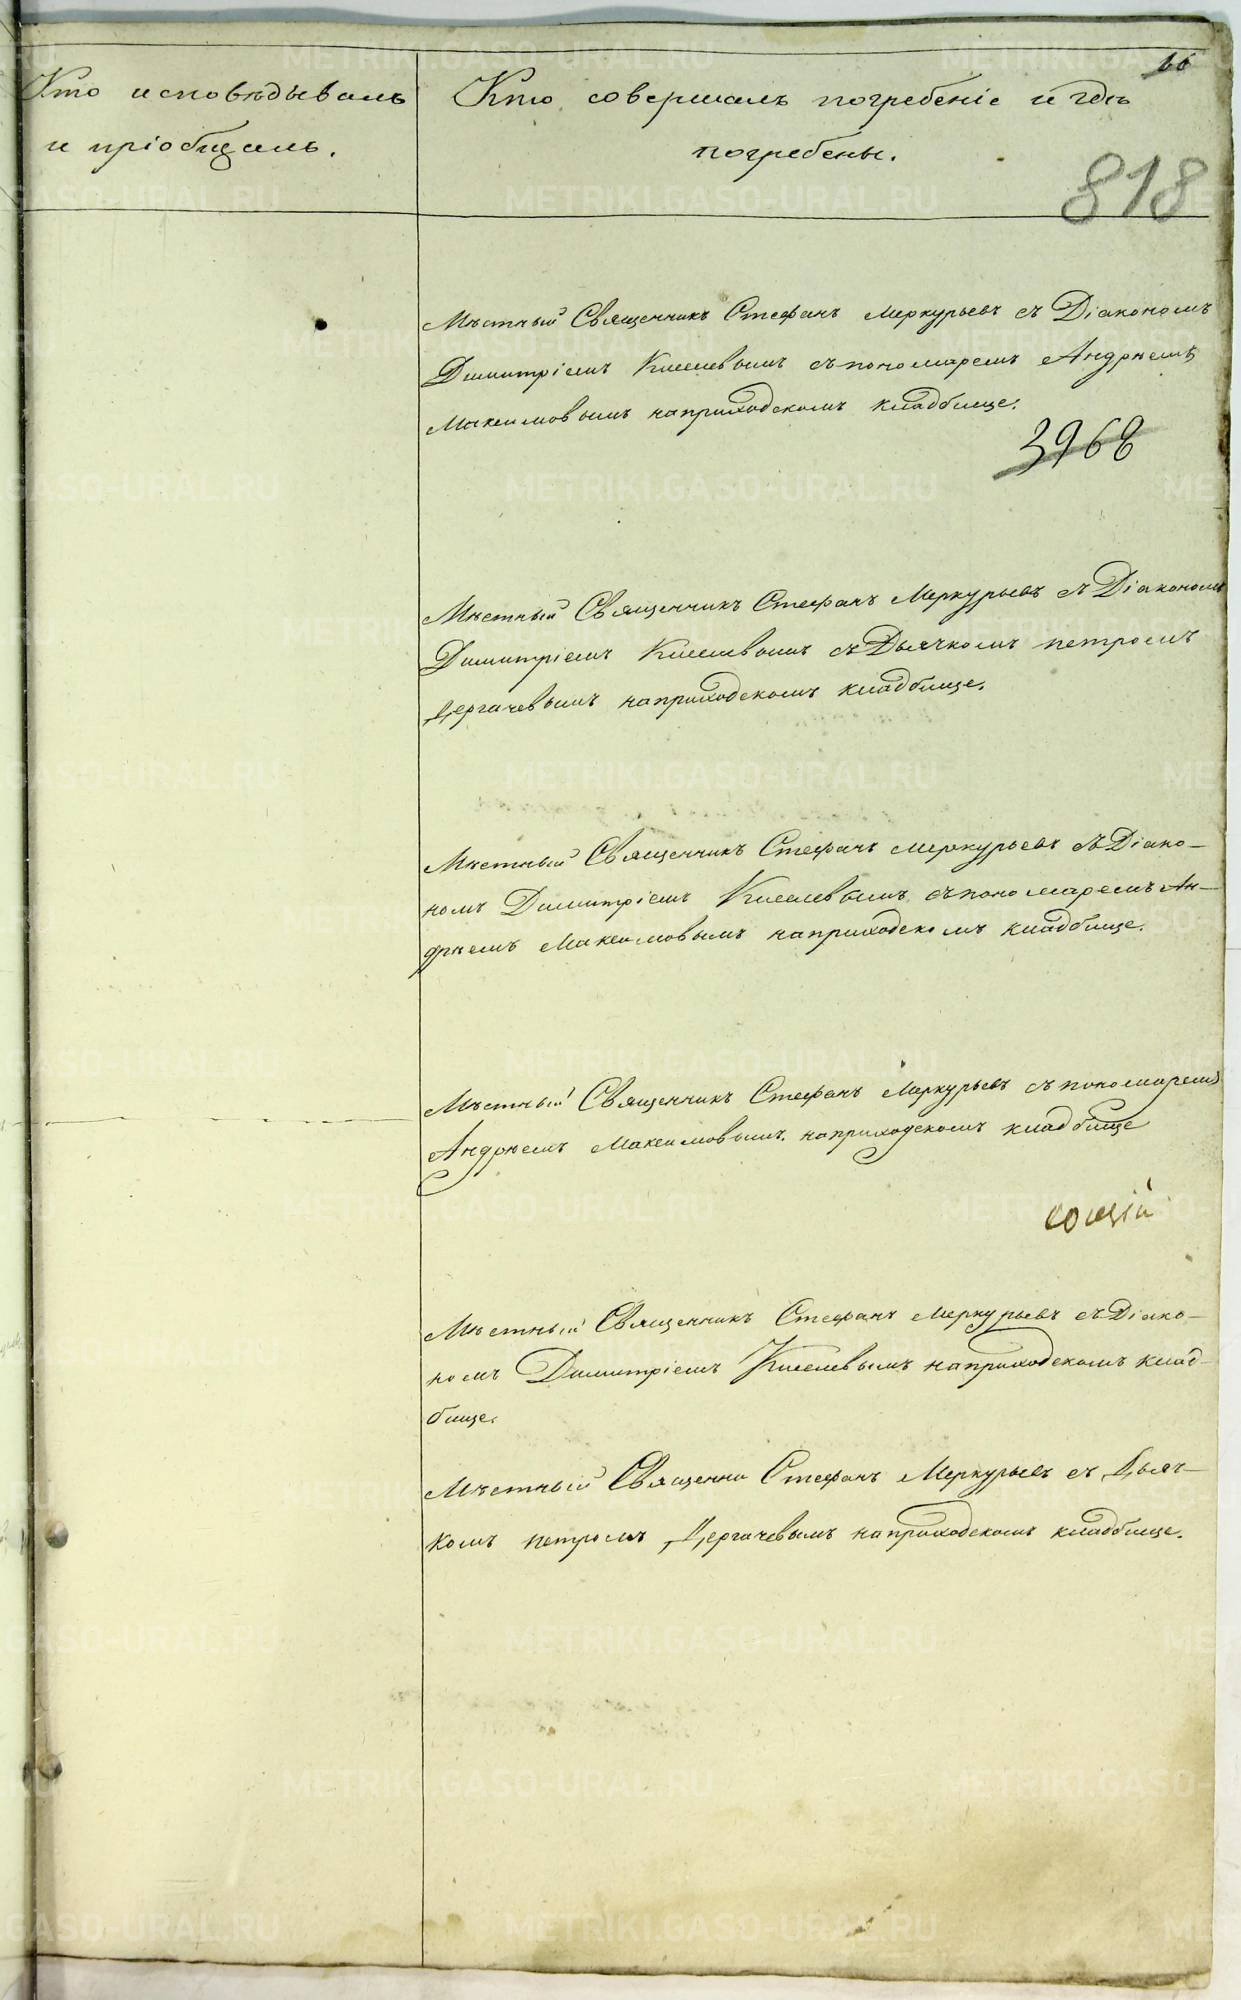 66
Кто исповѣдывалъ
и пріобщалъ.
Кто совершалъ погребеніе и гдѣ
погребены.
818
Мѣстный Священникъ Стефанъ Меркурьевъ съ Діакономъ
Димитріемъ Киселевымъ съ пономаремъ Андрѣемъ
Максимовымъ на приходскомъ кладбище.
3968
Мѣстный Священникъ Стефанъ Меркурьевъ съ Діакономъ
Димитріемъ Киселевымъ съ Дьячкомъ петромъ
Дергачевымъ на приходскомъ кладбище.
Мѣстный Священникъ Стефанъ Меркурьевъ съ Діако-
номъ Димитріемъ Киселевымъ съ пономаремъ Ан-
дрѣемъ Максимовымъ на приходскомъ кладбище.
Мѣстный Священникъ Стефанъ Меркурьевъ съ пономаремъ
Андрѣемъ Максимовымъ на приходскомъ кладбище
Мѣстный Священникъ Стефанъ Меркурьевъ съ Діако-
номъ Димитріемъ Киселевымъ на приходскомъ клад-
бище.
Мѣстный Священни Стефанъ Меркурьевъ съ Дьяч-
комъ петромъ Дергачевымъ на приходскомъ кладбище.
METRIKI.GASO-URAL.RU